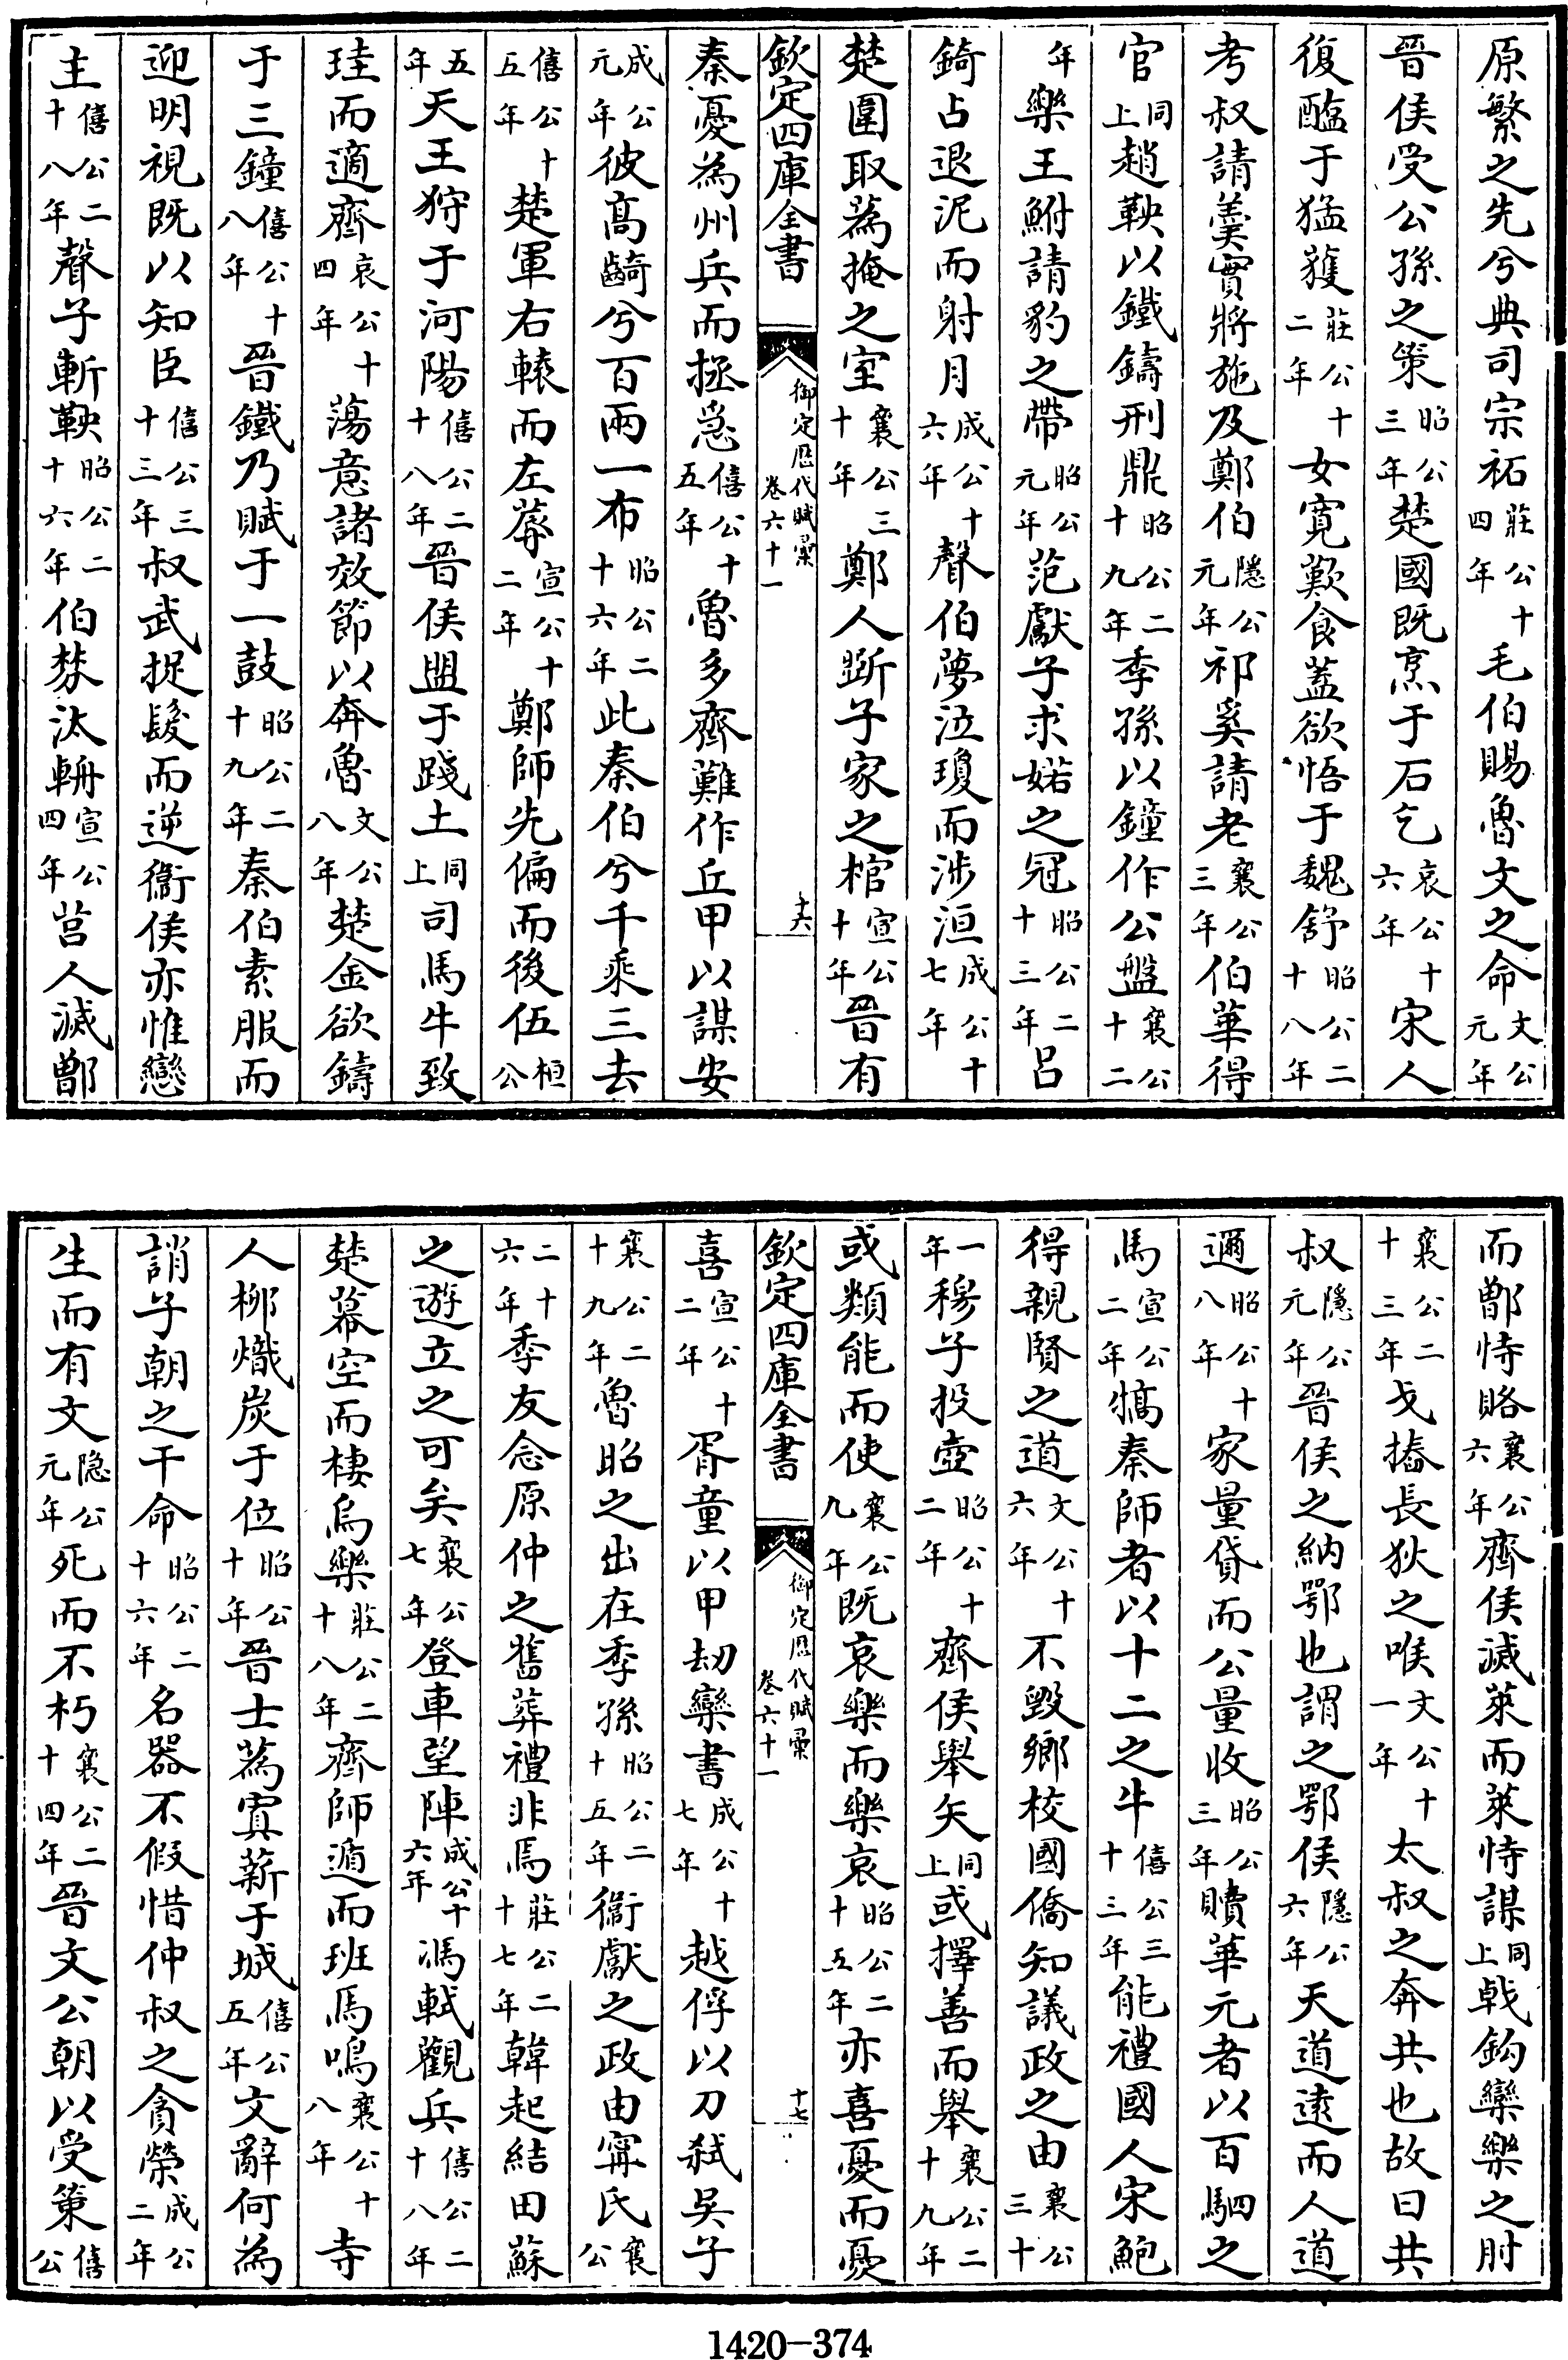 原繁之先兮典司宗祏莊公十四年毛伯賜魯文之命文公元年
晉侯受公孫之策昭公三年楚國既烹于石乞哀公十六年宋人
復醢于猛獲莊公十二年女寬歎食蓋欲悟于魏舒昭公二十八年
考叔請羹實將施及鄭伯隱公元年祁奚請老襄公三年伯華得
官同上趙鞅以鐵鑄刑鼎昭公二十九年季孫以鐘作公盤襄公十二
年樂王鮒請豹之帶昭公元年范獻子求婼之冠昭公二十三年呂
錡占退泥而射月成公十六年聲伯夢泣瓊而涉洹成公十七年
楚圍取蒍掩之室襄公三十年鄭人斲子家之棺宣公十年晉有
欽定四庫全書 御定歷代賦彙 卷六十一 十六
秦憂為州兵而拯急僖公十五年魯多齊難作丘甲以謀安
成公元年彼高齮兮百兩一布昭公二十六年此秦伯兮千乘三去
僖公十五年楚軍右轅而左蓐宣公十二年鄭師先偏而後伍桓公
五年天王狩于河陽僖公二十八年晉侯盟于踐土同上司馬牛致
珪而適齊哀公十四年蕩意諸效節以奔魯文公八年楚金欲鑄
于三鐘僖公十八年晉鐵乃賦于一鼓昭公二十九年秦伯素服而
迎明視既以知臣僖公三十三年叔武捉髮而逆衞侯亦惟戀
主僖公二十八年聲子斬鞅昭公二十六年伯棼汰輈宣公四年莒人滅鄫
而鄫恃賂襄公六年齊侯滅萊而萊恃謀同上戟鈎欒樂之肘
襄公二十三年戈摏長狄之喉文公十一年太叔之奔共也故曰共
叔隱公元年晉侯之納鄂也謂之鄂侯隱公六年天道遠而人道
邇昭公十八年家量貸而公量收昭公三年贖華元者以百駟之
馬宣公二年犒秦師者以十二之牛僖公三十三年能禮國人宋鮑
得親賢之道文公十六年不毀鄉校國僑知議政之由襄公三十
一年穆子投壺昭公十二年齊侯舉矢同上或擇善而舉襄公二十九年
或類能而使襄公九年既哀樂而樂哀昭公二十五年亦喜憂而憂
欽定四庫全書 御定歷代賦彙 卷六十一 十七
喜宣公十二年胥童以甲刼欒書成公十七年越俘以刀弒吳子
襄公二十九年魯昭之出在季孫昭公二十五年衞獻之政由甯氏襄公
二十六年季友念原仲之舊葬禮非焉莊公二十七年韓起結田蘇
之遊立之可矣襄公七年登車望陣成公十六年馮軾觀兵僖公二十八年
楚幕空而棲烏樂莊公二十八年齊師遁而班馬鳴襄公十八年寺
人柳熾炭于位昭公十年晉士蒍寘薪于城僖公五年文辭何為
誚子朝之干命昭公二十六年名器不假惜仲叔之貪榮成公二年
生而有文隐公元年死而不朽襄公二十四年晉文公朝以受策僖公
1420-374